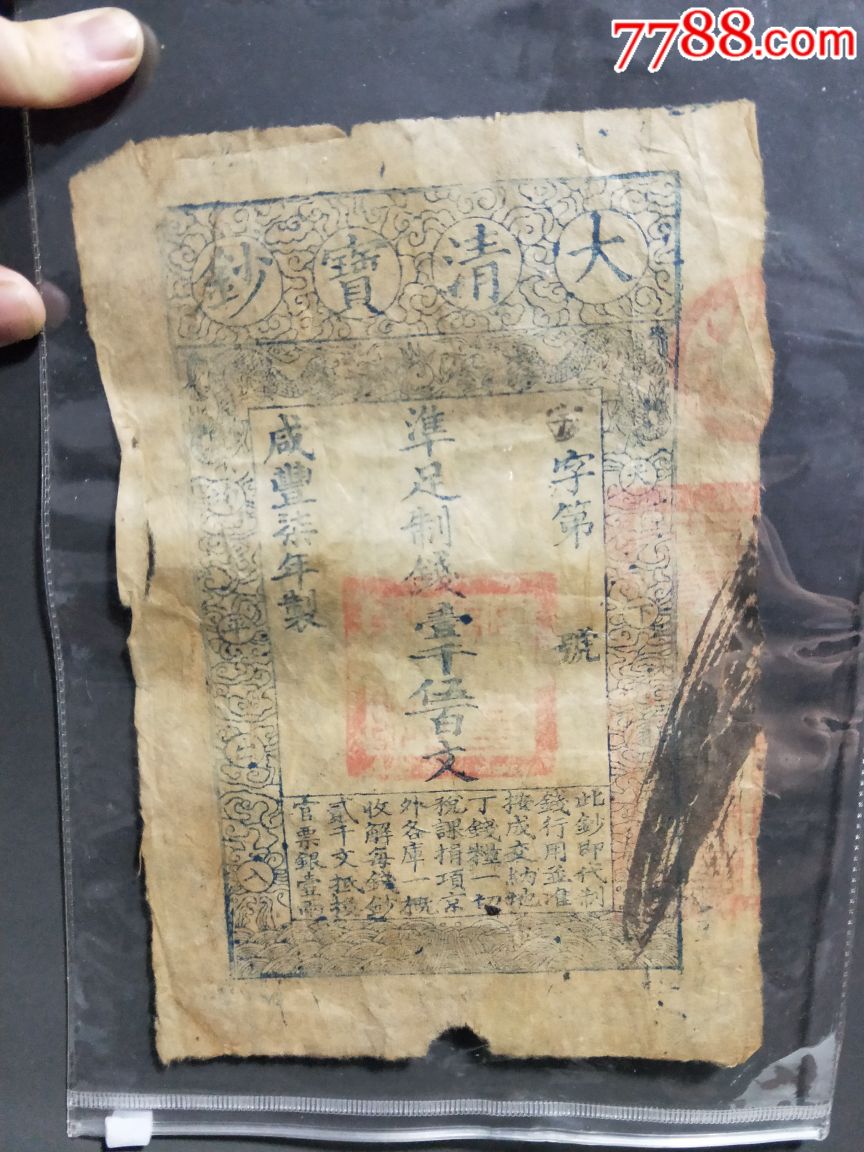 7788.com
大清寶鈔
字第 號
準足制錢壹千伍百文
咸豐柒年製
此鈔即代制
錢行用並准
按成交納地
丁錢糧一切
稅課捐項京
外各庫一概
收解每錢鈔
貳千文抵換
官票銀壹兩